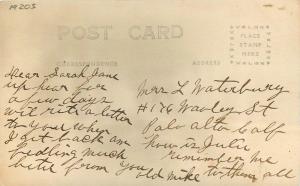 1920S
POST CARD
CORRESPONDENCE
ADDRESS
PLACE
STAMP
HERE
Dear Sarah Jane
up hear for
a few days
will rite a letter
to you when
I get back am
feelling much
better from you
old mike
Mrs L Waterbury
#176 Waverley St
Palo alto Calf
how is Julie
remember me
to them all